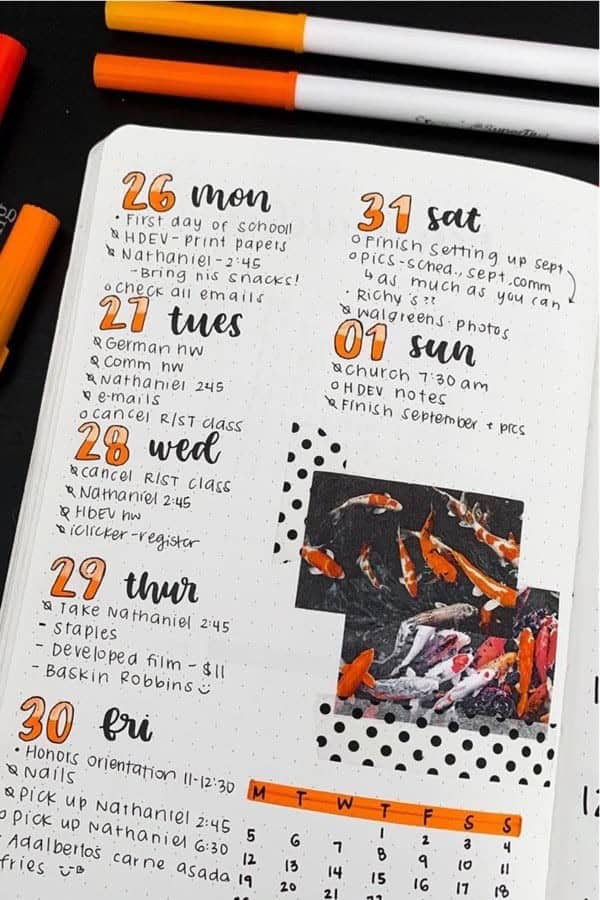 26 mon
• First day of school!
HDEV - print papers
Nathaniel - 2:45
- Bring his snacks!
o check all emails
27 tues
German hw
Comm hw
Nathaniel 245
e-mails
o cancel R/ST class
28 wed
cancel R/ST class
Nathaniel 2:45
HDEV hw
iclicker - register
29 thur
Take Nathaniel 2:45
- Staples
- Developed film - $11
- Baskin Robbins
30 fri
• Honors orientation 11-12:30
Nails
pick up Nathaniel 2:45
o pick up Nathaniel 6:30
• Adalberto's carne asada
fries
31 sat
o Finish setting up sept
o pics - sched., sept. comm
↳ as much as you can
• Richy's ??
Walgreens photos
01 sun
Church 7:30 am
o HDEV notes
Finish September + pics
M T W T F S S
1 2 3 4
5 6 7 8 9 10 11
12 13 14 15 16 17 18
19 20 21